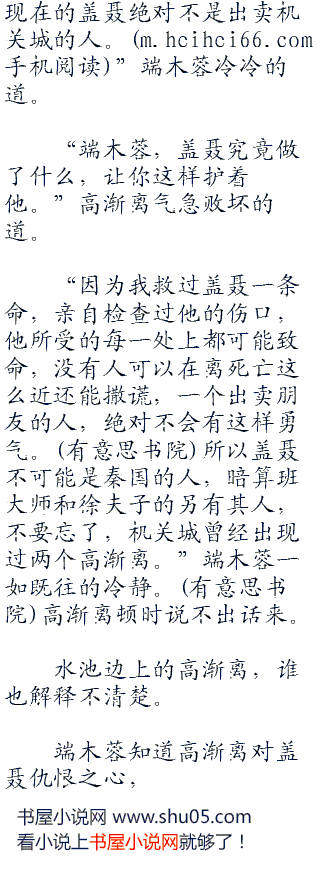 现在的盖聂绝对不是出卖机
关城的人。(m.hcihci66.com
手机阅读)”端木蓉冷冷的
道。
“端木蓉，盖聂究竟做
了什么，让你这样护着
他。”高渐离气急败坏的
道。
“因为我救过盖聂一条
命，亲自检查过他的伤口，
他所受的每一处上都可能致
命，没有人可以在离死亡这
么近还能撒谎，一个出卖朋
友的人，绝对不会有这样勇
气。(有意思书院)所以盖聂
不可能是秦国的人，暗算班
大师和徐夫子的另有其人，
不要忘了，机关城曾经出现
过两个高渐离。”端木蓉一
如既往的冷静。(有意思书
院)高渐离顿时说不出话来。
水池边上的高渐离，谁
也解释不清楚。
端木蓉知道高渐离对盖
聂仇恨之心，
书屋小说网 www.shu05.com
看小说上书屋小说网就够了！